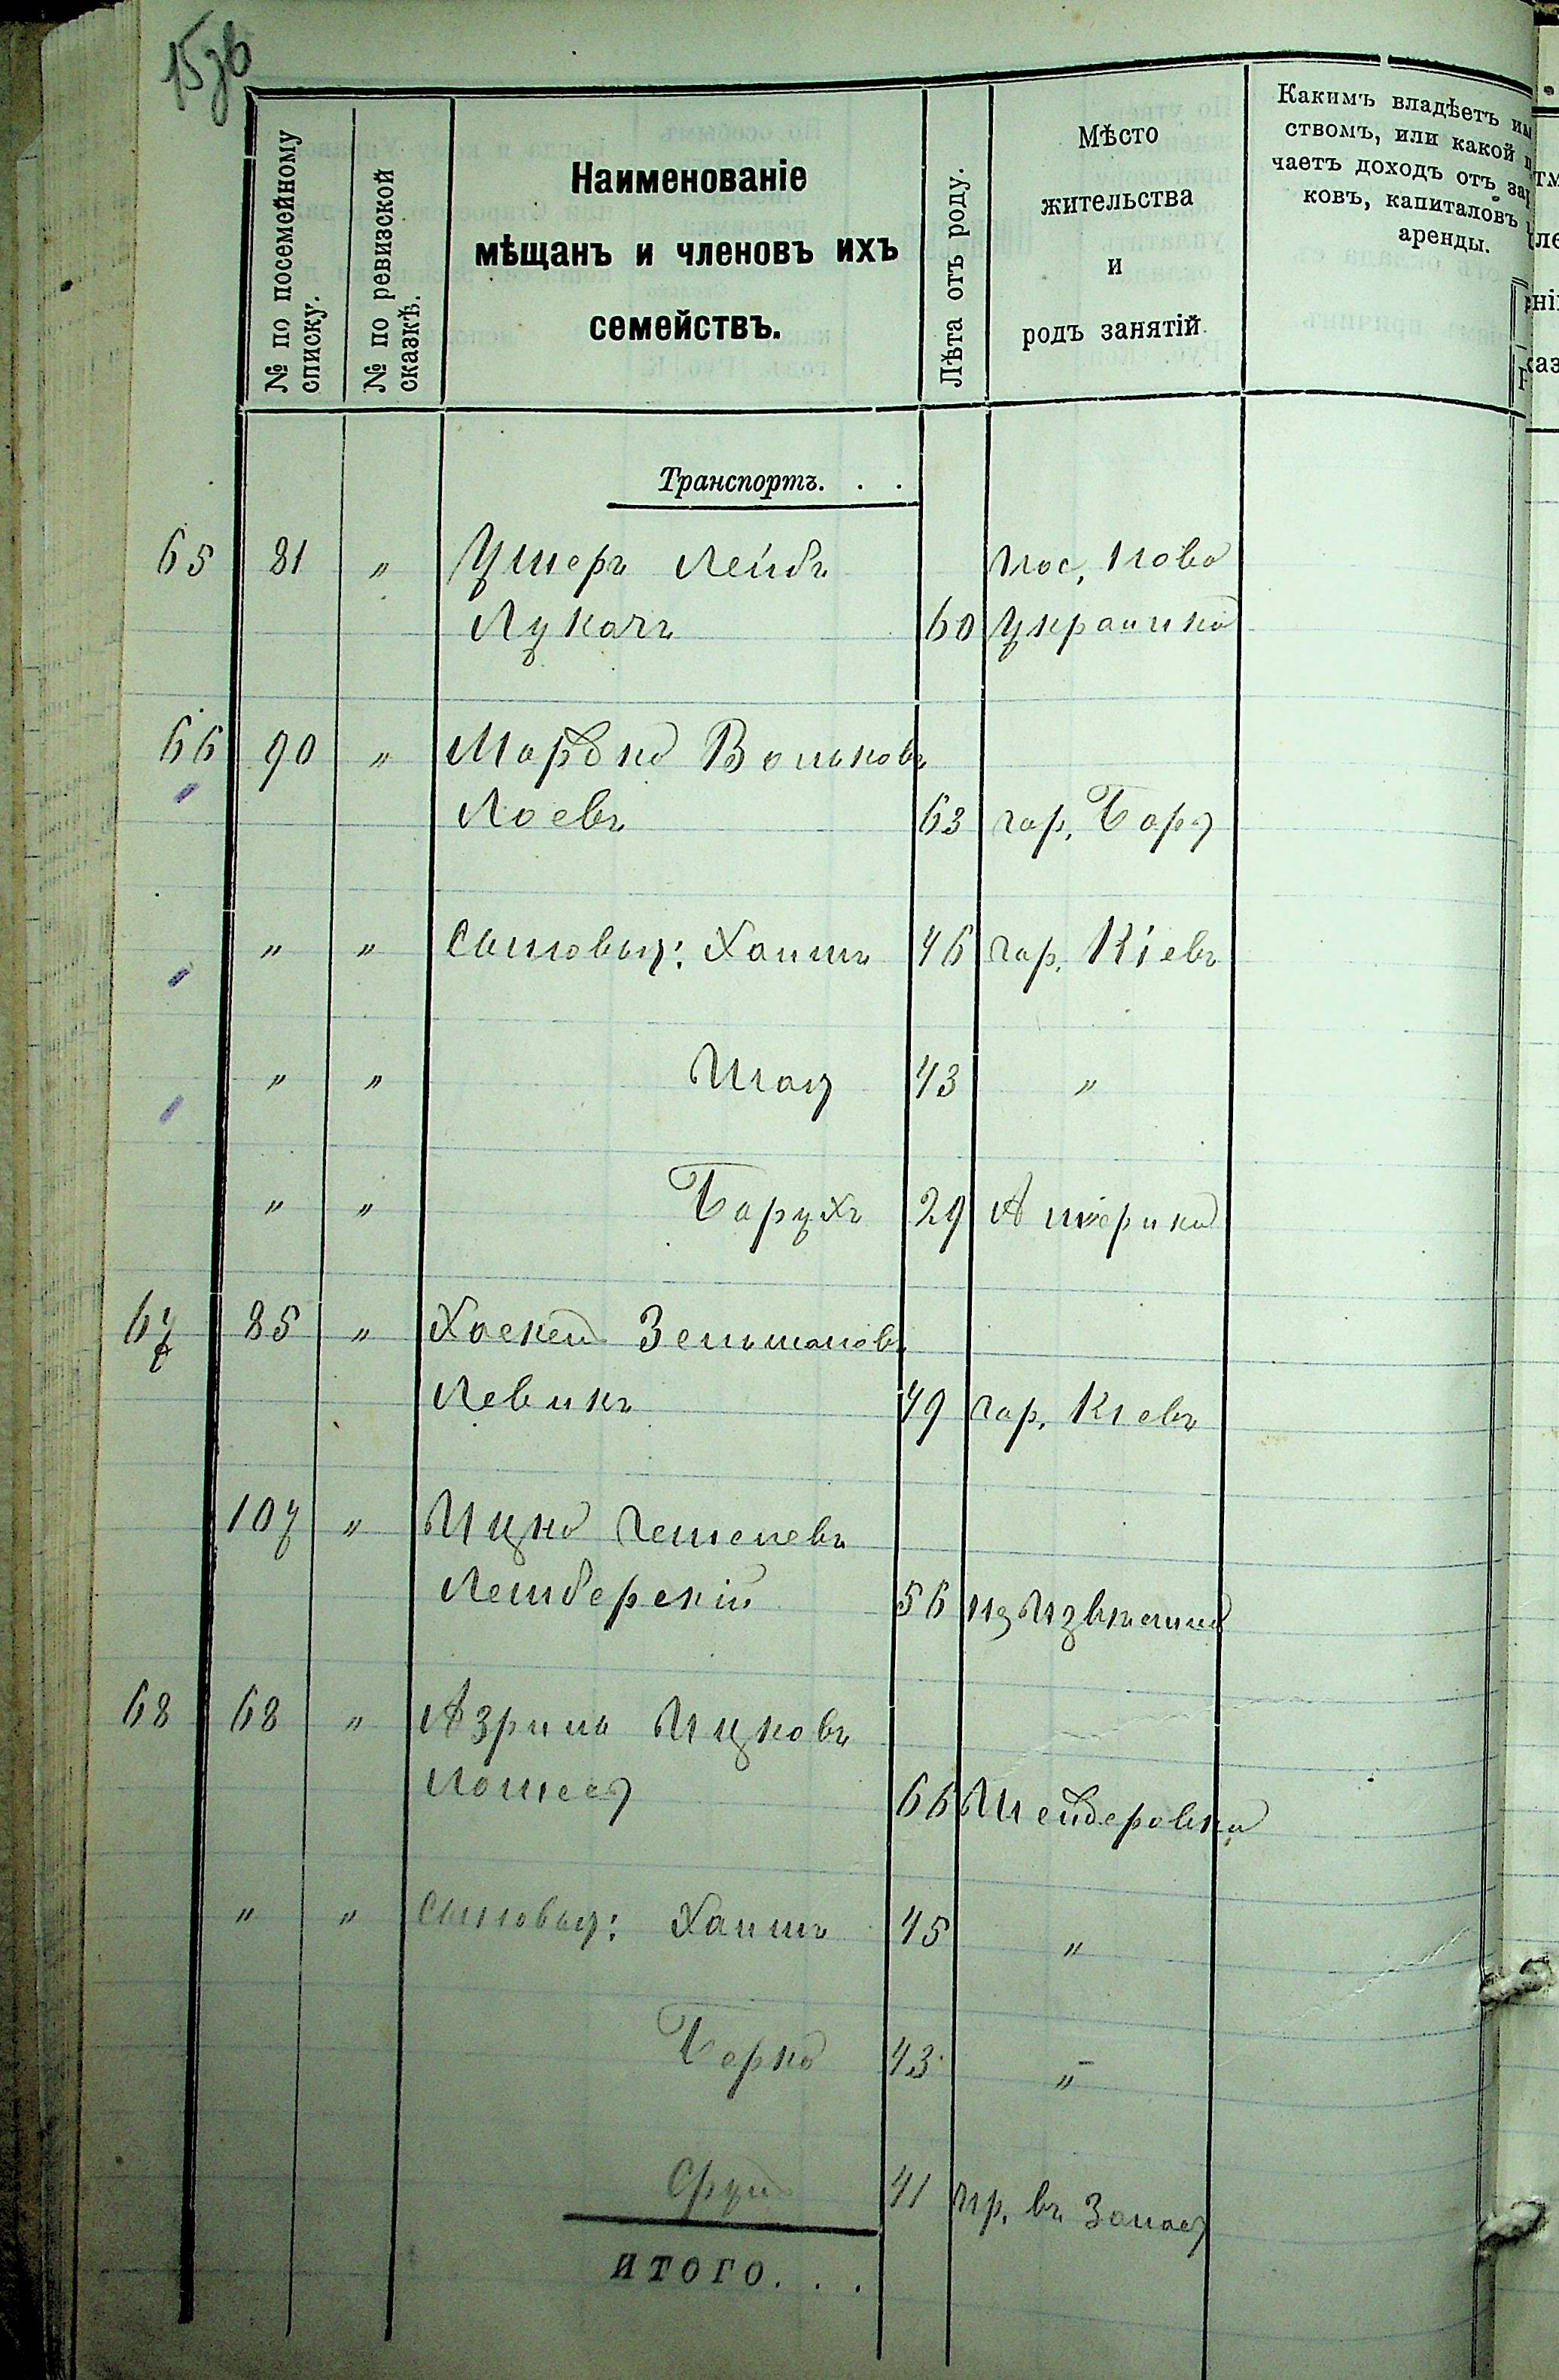 15зв
№ по посемейному
списку.
№ по ревизской
сказкѣ.
Наименованіе
мѣщанъ и членовъ ихъ
семействъ.
Лѣта отъ роду.
Мѣсто
жительства
и
родъ занятій
Какимъ владѣетъ
ствомъ, или какой
чаетъ доходъ отъ
ковъ, капиталовъ
аренды.
Транспортъ. . .
65 81 „ Ушеръ Лейбъ пос. Ново
Лукачъ 60 Украинка
66 90 „ Мордко Вольковъ
Лоевъ 63 гор.
„ „ Сыновья: Хаимъ 46 гор. Кіевъ
„ „ 43 „
„ „ Борухъ 29 Америка
67 85 „ Хаскель Зельмановъ
Левикъ 49 гор. Кіевъ
107 „ Ицко
Лемберскій 56
68 68 „ Азриль Ицковъ
66
„ „ Сыновья: Хаимъ 45 „
Берко 43 „
Сруль 41 пр. въ
ИТОГО. . .